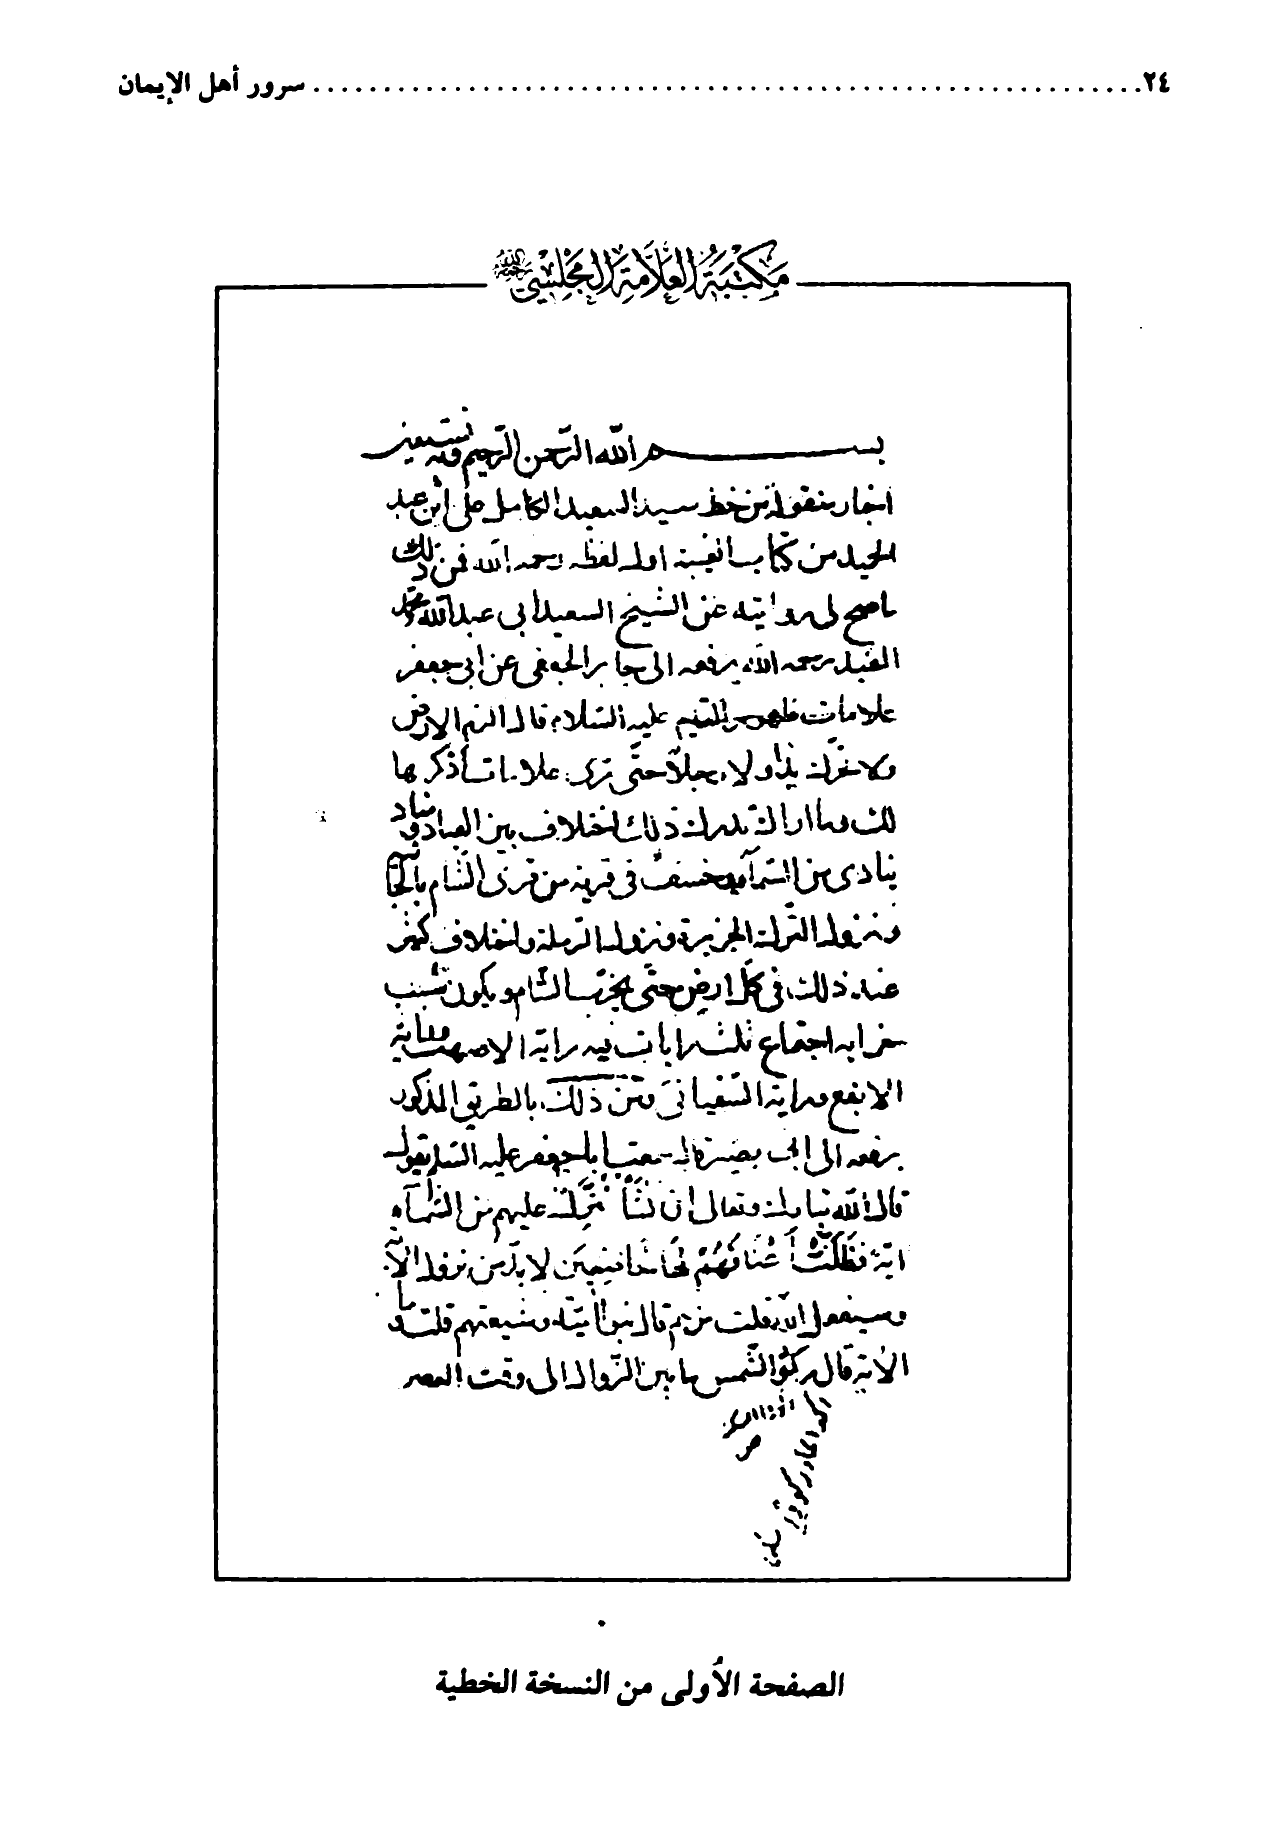 ٢٤ ........................................................... سرور أهل الإيمان
مكتبة العلامة المجلسي
بسم الله الرحمن الرحيم وبه نستعين
اخبار منقولة من خط سيد السعيد الكامل علي ابن عبد
الحميد من كتاب الغيبة اوله لفظه رحمه الله فمن ذلك
ما صح لي روايته عن الشيخ السعيد ابي عبد الله محمد
المفيد رحمه الله يرفعه الى جابر الجعفي عن ابي جعفر
علامات ظهور القائم عليه السلام قال الزم الارض
ولا تحرك يدا ولا رجلا حتى ترى علامات أذكرها
لك وما اراك تدرك ذلك اختلاف بين العباد ومناد
ينادي من السماء وخسف في قرية من قرى الشام بالجابية
ونزول الترك الجزيرة ونزول الرملة واختلاف كثير
عند ذلك في كل ارض حتى يخرب الشام ويكون سبب
خرابه اجتماع ثلث رايات فيه راية الاصهب وراية
الابقع وراية السفياني ومن ذلك بالطريق المذكور
يرفعه الى ابي بصير قال سمعت ابا جعفر عليه السلام يقول
قال الله تبارك وتعالى ان نشأ ننزل عليهم من السماء
اية فظلت أعناقهم لها خاضعين لا بد من نزول الآية
وسيفعل الله قلت من هم قال بنو امية وشيعتهم قلت ما
الاية قال ركود الشمس ما بين الزوال الى وقت العصر
الصفحة الأولى من النسخة الخطية